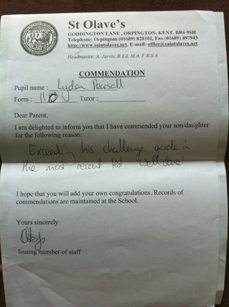 St Olave's
GODDINGTON LANE, ORPINGTON, KENT. BR6 9SH
Telephone: Orpington (01689) 820101, Fax (01689) 897943
http://www.saintolaves.net. E-mail: office@saintolaves.net
Headmaster: A. Jarvis, B.Ed, M.A, F.R.S.A
COMMENDATION
Pupil name:
Form: Tutor:
Dear Parent,
I am delighted to inform you that I have commended your son/daughter
for the following reason:
Exceeding his challenge grade in
the most recent test. Well done!
I hope that you will add your own congratulations. Records of
commendations are maintained at the School.
Yours sincerely
Issuing member of staff